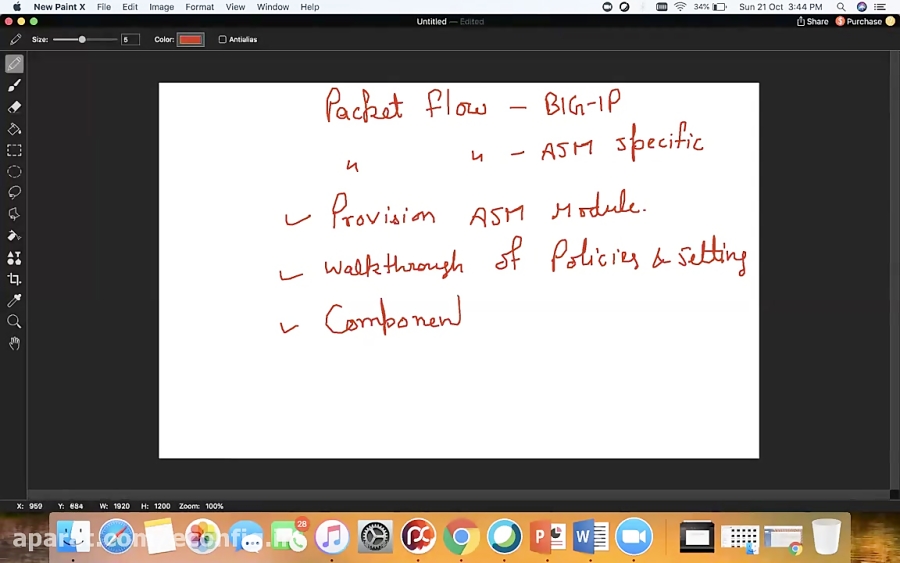 New Paint X File Edit Image Format View Window Help 34% Sun 21 Oct 3:44 PM
Untitled — Edited Share Purchase
Size: 5 Color: Antialias
Packet flow - BIG-IP
" " - ASM specific
Provision ASM Module.
Walkthrough of Policies & setting
Component
X: 959 Y: 684 W: 1920 H: 1200 Zoom: 100%
28